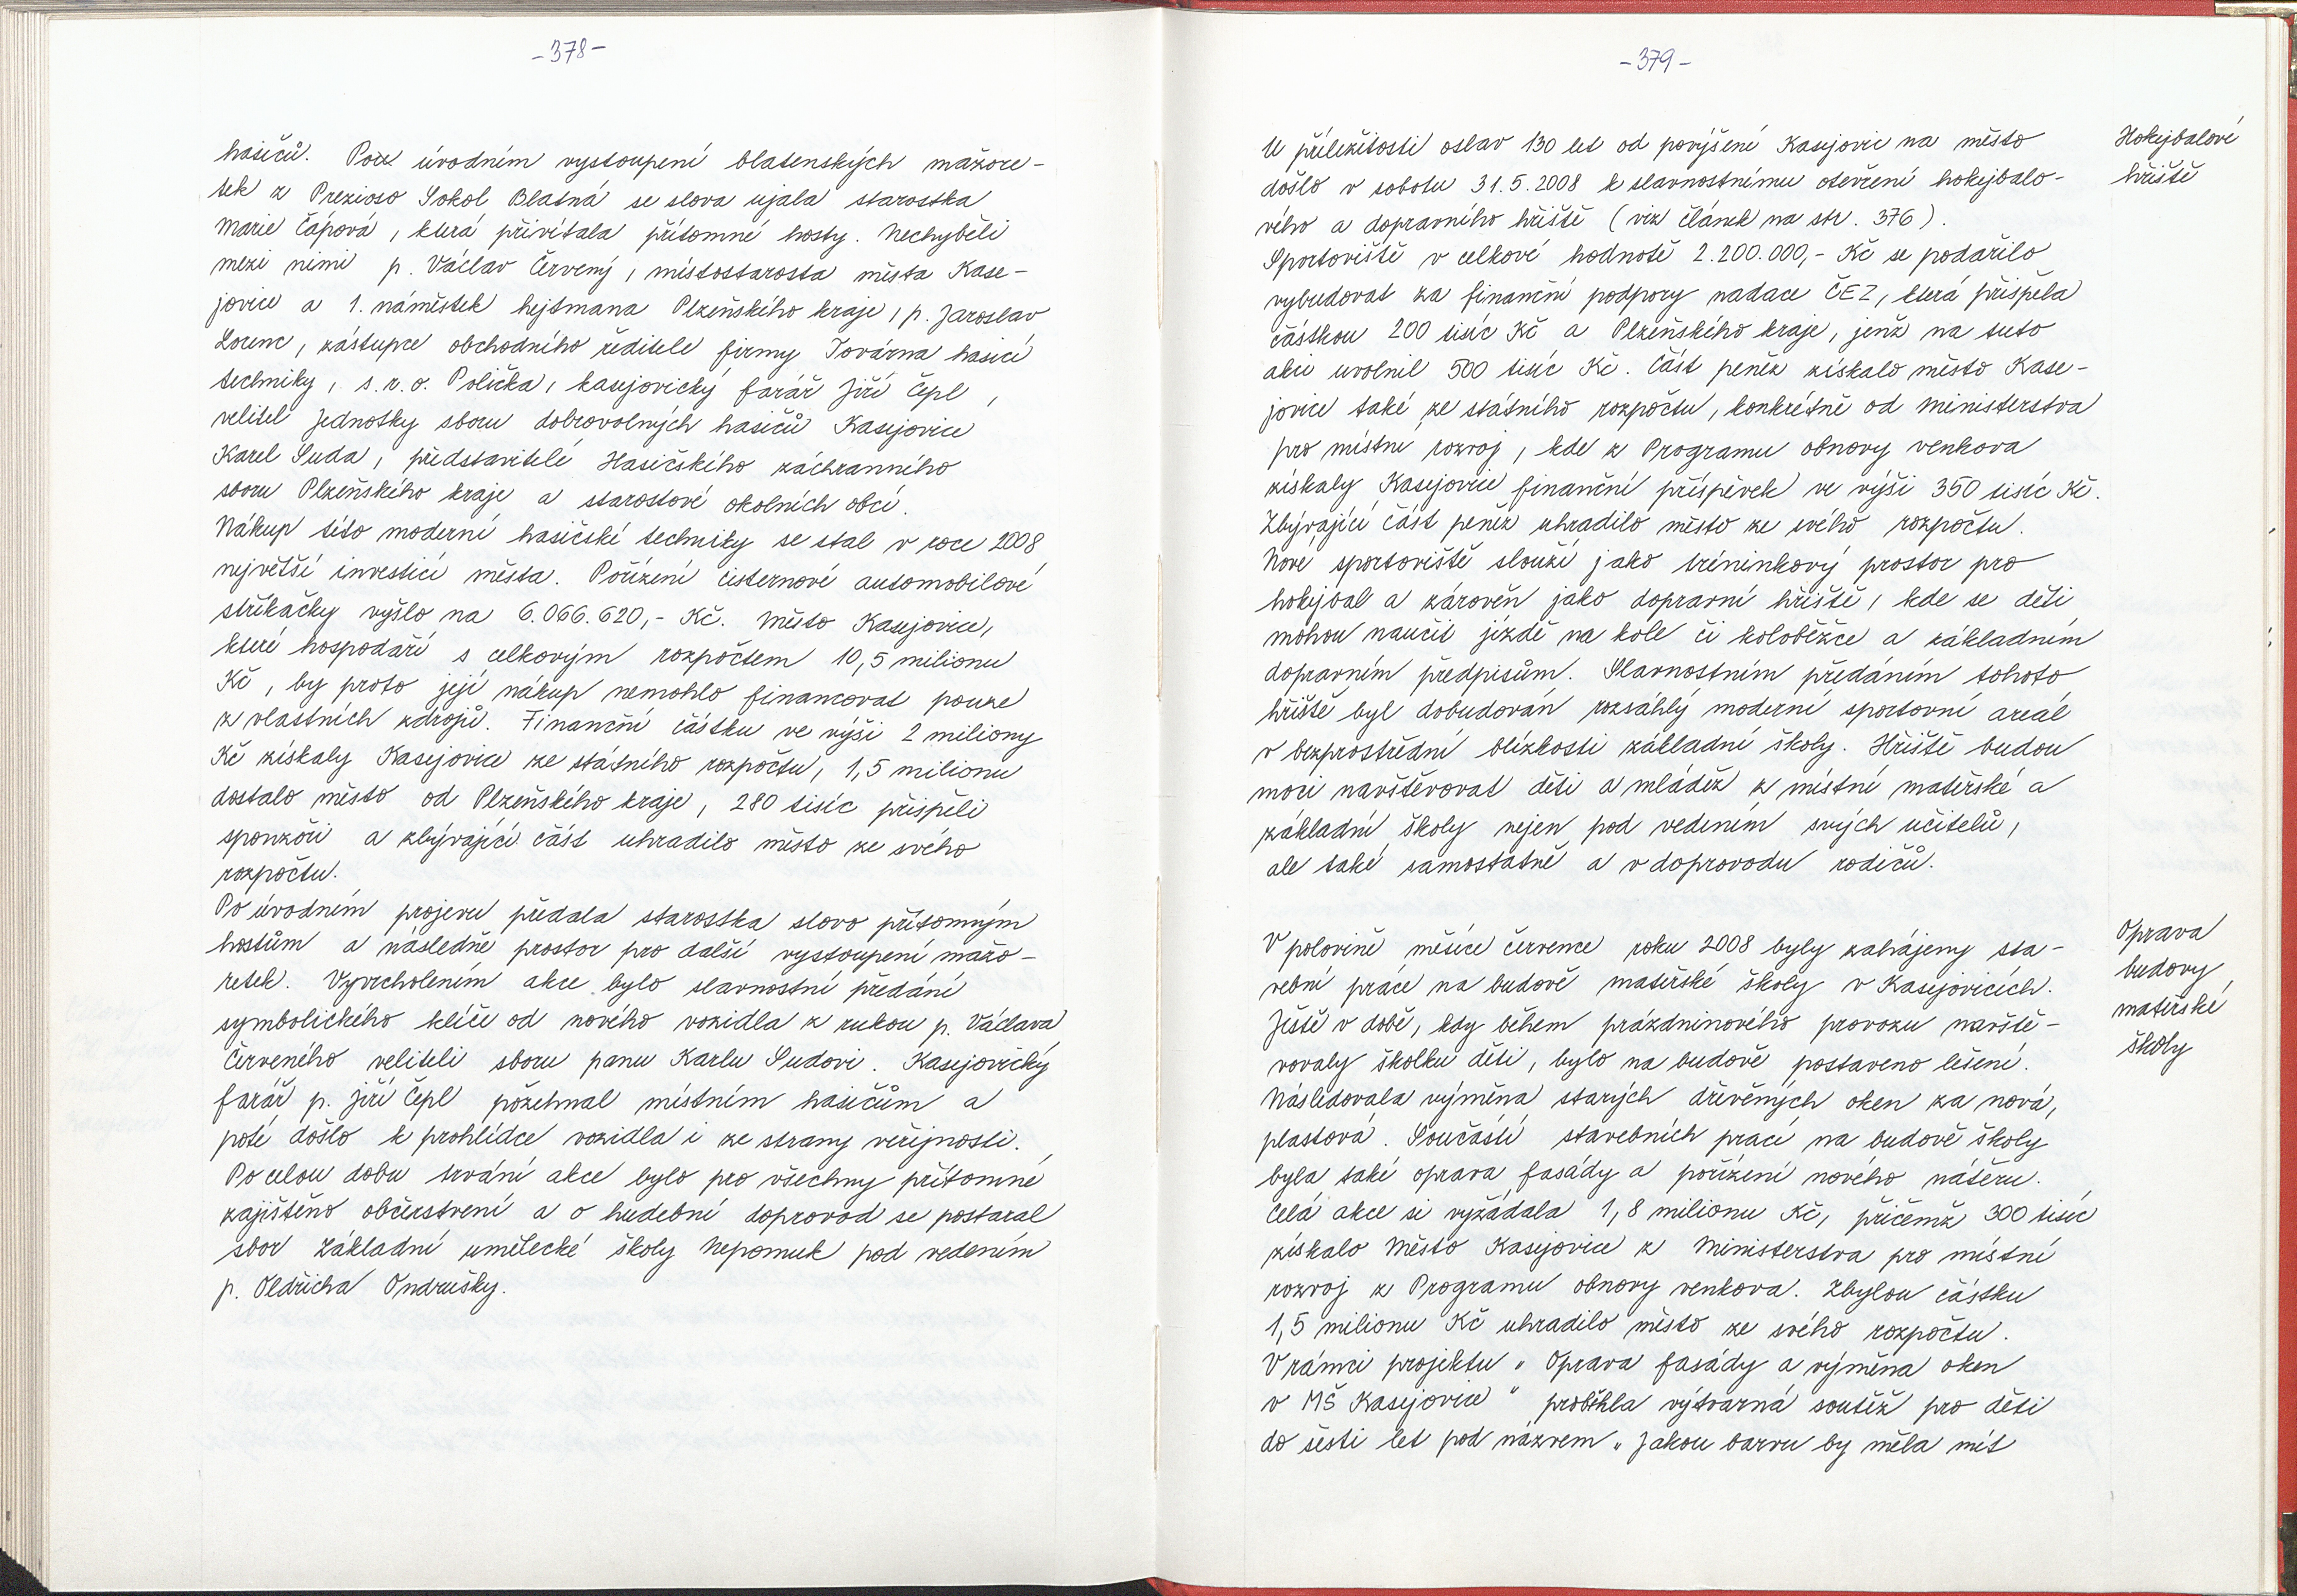 -378-
hasičů. Po úvodním vystoupení blatenských mažore-
tek z Prezioso Sokol Blatná se slova ujala starostka
Marie Čápová, která přivítala přítomné hosty. Nechyběli
mezi nimi p. Václav Červený, místostarosta města Kase-
jovice a 1. náměstek hejtmana Plzeňského kraje, p. Jaroslav
Lorenc, zástupce obchodního ředitele firmy Továrna hasicí
techniky, s.r.o. Polička, kasejovický farář Jiří Čepl,
velitel Jednotky sboru dobrovolných hasičů Kasejovice
Karel Suda, představitelé Hasičského záchranného
sboru Plzeňského kraje a starostové okolních obcí.
Nákup této moderní hasičské techniky se stal v roce 2008
největší investicí města. Pořízení cisternové automobilové
stříkačky vyšlo na 6.066.620,- Kč. Město Kasejovice,
které hospodaří s celkovým rozpočtem 10,5 milionu
Kč, by proto její nákup nemohlo financovat pouze
z vlastních zdrojů. Finanční částku ve výši 2 miliony
Kč získaly Kasejovice ze státního rozpočtu, 1,5 milionu
dostalo město od Plzeňského kraje, 280 tisíc přispěli
sponzoři a zbývající část uhradilo město ze svého
rozpočtu.
Po úvodním projevu předala starostka slovo přítomným
hostům a následně prostor pro další vystoupení mažo-
retek. Vyvrcholením akce bylo slavnostní předání
symbolického klíče od nového vozidla z rukou p. Václava
Červeného veliteli sboru panu Karlu Sudovi. Kasejovický
farář p. Jiří Čepl požehnal místním hasičům a
poté došlo k prohlídce vozidla i ze strany veřejnosti.
Po celou dobu trvání akce bylo pro všechny přítomné
zajištěno občerstvení a o hudební doprovod se postaral
sbor Základní umělecké školy Nepomuk pod vedením
p. Oldřicha Ondrušky.
-379-
U příležitosti oslav 130 let od povýšení Kasejovic na město
došlo v sobotu 31.5.2008 k slavnostnímu otevření hokejbalo-
vého a dopravního hřiště (viz článek na str. 376).
Sportoviště v celkové hodnotě 2.200.000,- Kč se podařilo
vybudovat za finanční podpory nadace ČEZ, která přispěla
částkou 200 tisíc Kč a Plzeňského kraje, jenž na tuto
akci uvolnil 500 tisíc Kč. Část peněz získalo město Kase-
jovice také ze státního rozpočtu, konkrétně od Ministerstva
pro místní rozvoj, kde z Programu obnovy venkova
získaly Kasejovice finanční příspěvek ve výši 350 tisíc Kč.
Zbývající část peněz uhradilo město ze svého rozpočtu.
Nové sportoviště slouží jako tréninkový prostor pro
hokejbal a zároveň jako dopravní hřiště, kde se děti
mohou naučit jízdě na kole či koloběžce a základním
dopravním předpisům. Slavnostním předáním tohoto
hřiště byl dobudován rozsáhlý moderní sportovní areál
v bezprostřední blízkosti základní školy. Hřiště budou
moci navštěvovat děti a mládež z místní mateřské a
základní školy nejen pod vedením svých učitelů,
ale také samostatně a v doprovodu rodičů.
Hokejbalové
hřiště
V polovině měsíce července roku 2008 byly zahájeny sta-
vební práce na budově mateřské školy v Kasejovicích.
Ještě v době, kdy během prázdninového provozu navště-
vovaly školku děti, bylo na budově postaveno lešení.
Následovala výměna starých dřevěných oken za nová,
plastová. Součástí stavebních prací na budově školy
byla také oprava fasády a pořízení nového nátěru.
Celá akce si vyžádala 1,8 milionu Kč, přičemž 300 tisíc
získalo Město Kasejovice z Ministerstva pro místní
rozvoj z Programu obnovy venkova. Zbylou částku
1,5 milionu Kč uhradilo město ze svého rozpočtu.
V rámci projektu „Oprava fasády a výměna oken
v MŠ Kasejovice" proběhla výtvarná soutěž pro děti
do šesti let pod názvem „Jakou barvu by měla mít
Oprava
budovy
mateřské
školy